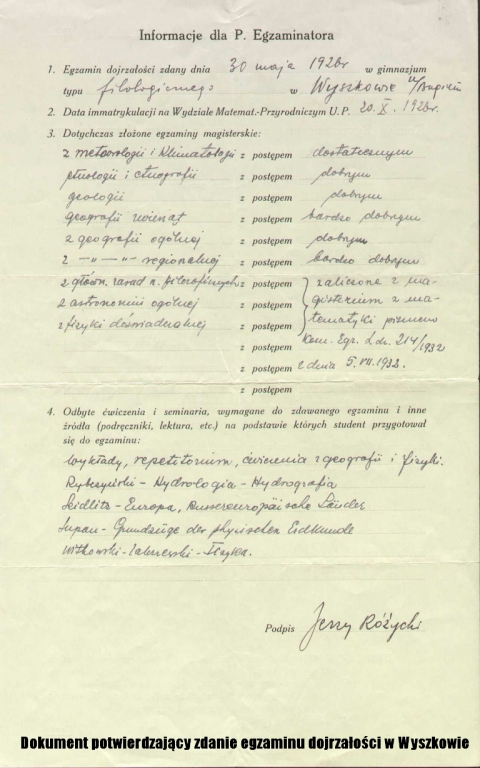 Informacje dla P. Egzaminatora
1. Egzamin dojrzałości zdany dnia 30 maja 1928r w gimnazjum
typu filologicznego w Wyszkowie n/Bugiem
2. Data immatrykulacji na Wydziale Matemat.-Przyrodniczym U.P. 20.X.1928r.
3. Dotychczas złożone egzaminy magisterskie:
z meteorologii i klimatologii z postępem dostatecznym
etnologii i etnografii z postępem dobrym
geologii z postępem dobrym
geografii zwierząt z postępem bardzo dobrym
z geografii ogólnej z postępem dobrym
z —„— —„— regionalnej z postępem bardzo dobrym
z główn. zasad n. filozoficznych z postępem zaliczone z ma-
z astronomii ogólnej z postępem gisterium z ma-
z fizyki doświadczalnej z postępem tematyki pismem
z postępem Kom. Egz. L.dz. 214/1932
z postępem z dnia 5.VII.1932.
z postępem
4. Odbyte ćwiczenia i seminaria, wymagane do zdawanego egzaminu i inne
źródła (podręczniki, lektura, etc.) na podstawie których student przygotował
się do egzaminu:
wykłady, repetitorium, ćwiczenia z geografii i fizyki.
Rybczyński - Hydrologia - Hydrografia
Seidlitz - Europa, Aussereuropäische Länder
Supan - Grundzüge der physischen Erdkunde
Witkowski - Zakrzewski - Fizyka.
Podpis Jerzy Różycki
Dokument potwierdzający zdanie egzaminu dojrzałości w Wyszkowie